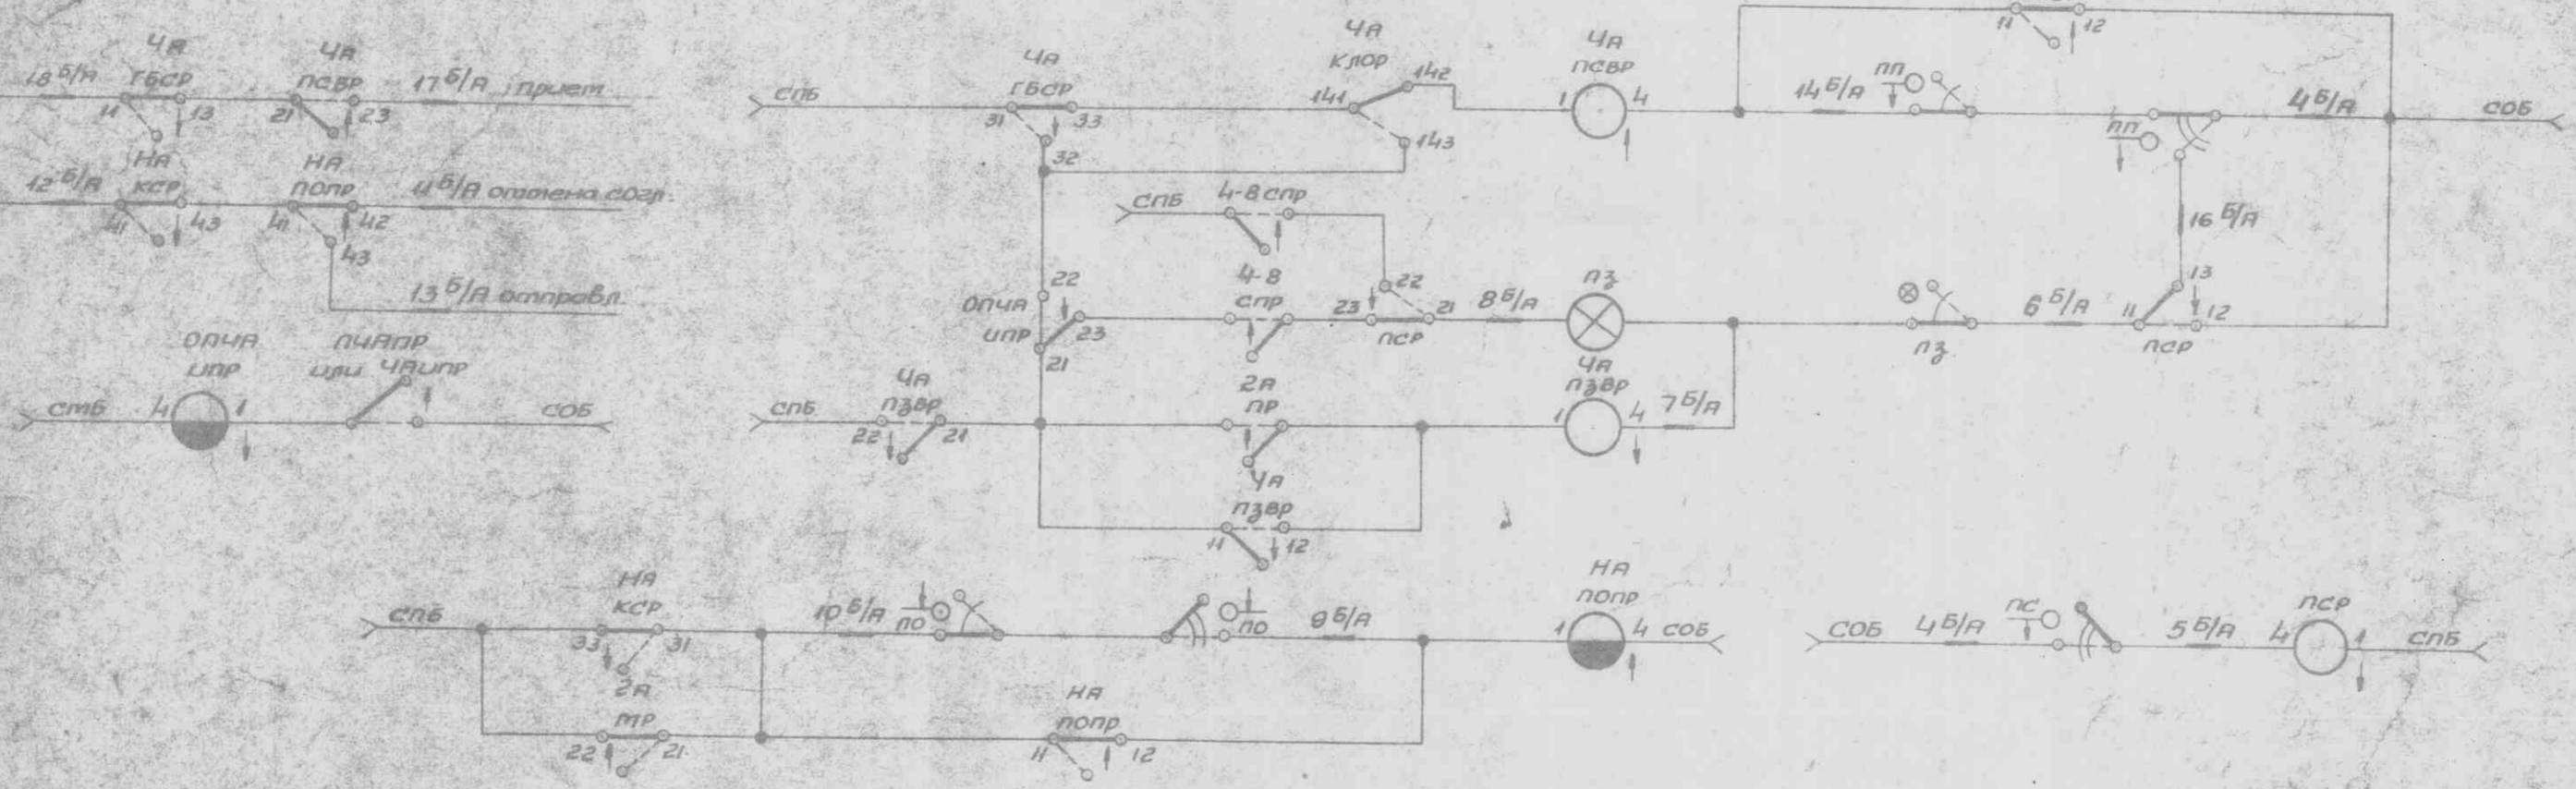 ЧА ГБСР
ЧА ПСВР
18 Б/А 11 13 21 23 17 Б/А прием
НА КСР
НА ПОПР
12 Б/А 41 43 41 42 43 11 Б/А отмена согл.
13 Б/А отправл.
ОПЧА ИПР
ПЧАПР или ЧАИПР
СМБ 4 1 СОБ
СПБ
ЧА ГБСР
31 33 32
ЧА КЛОР
141 142 143
ЧА ПСВР
1 4
11 12
14 Б/А
ПП
ПП
4 Б/А
СОБ
16 Б/А
СПБ
4-8 СПР
ОПЧА ИПР
22 23 21
4-8 СПР
22 23 21
ПСР
8 Б/А
ПЗ
ПЗ
6 Б/А
11 13 12
ПСР
СПБ
ЧА ПЗВР
22 21
2А ПР
ЧА ПЗВР
1 4
7 Б/А
ЧА ПЗВР
11 12
СПБ
НА КСР
33 31
2А МР
22 21
10 Б/А
ПО
ПО
9 Б/А
НА ПОПР
11 12
НА ПОПР
1 4 СОБ
СОБ 4 Б/А
ПС
5 Б/А
ПСР
4 1 СПБ